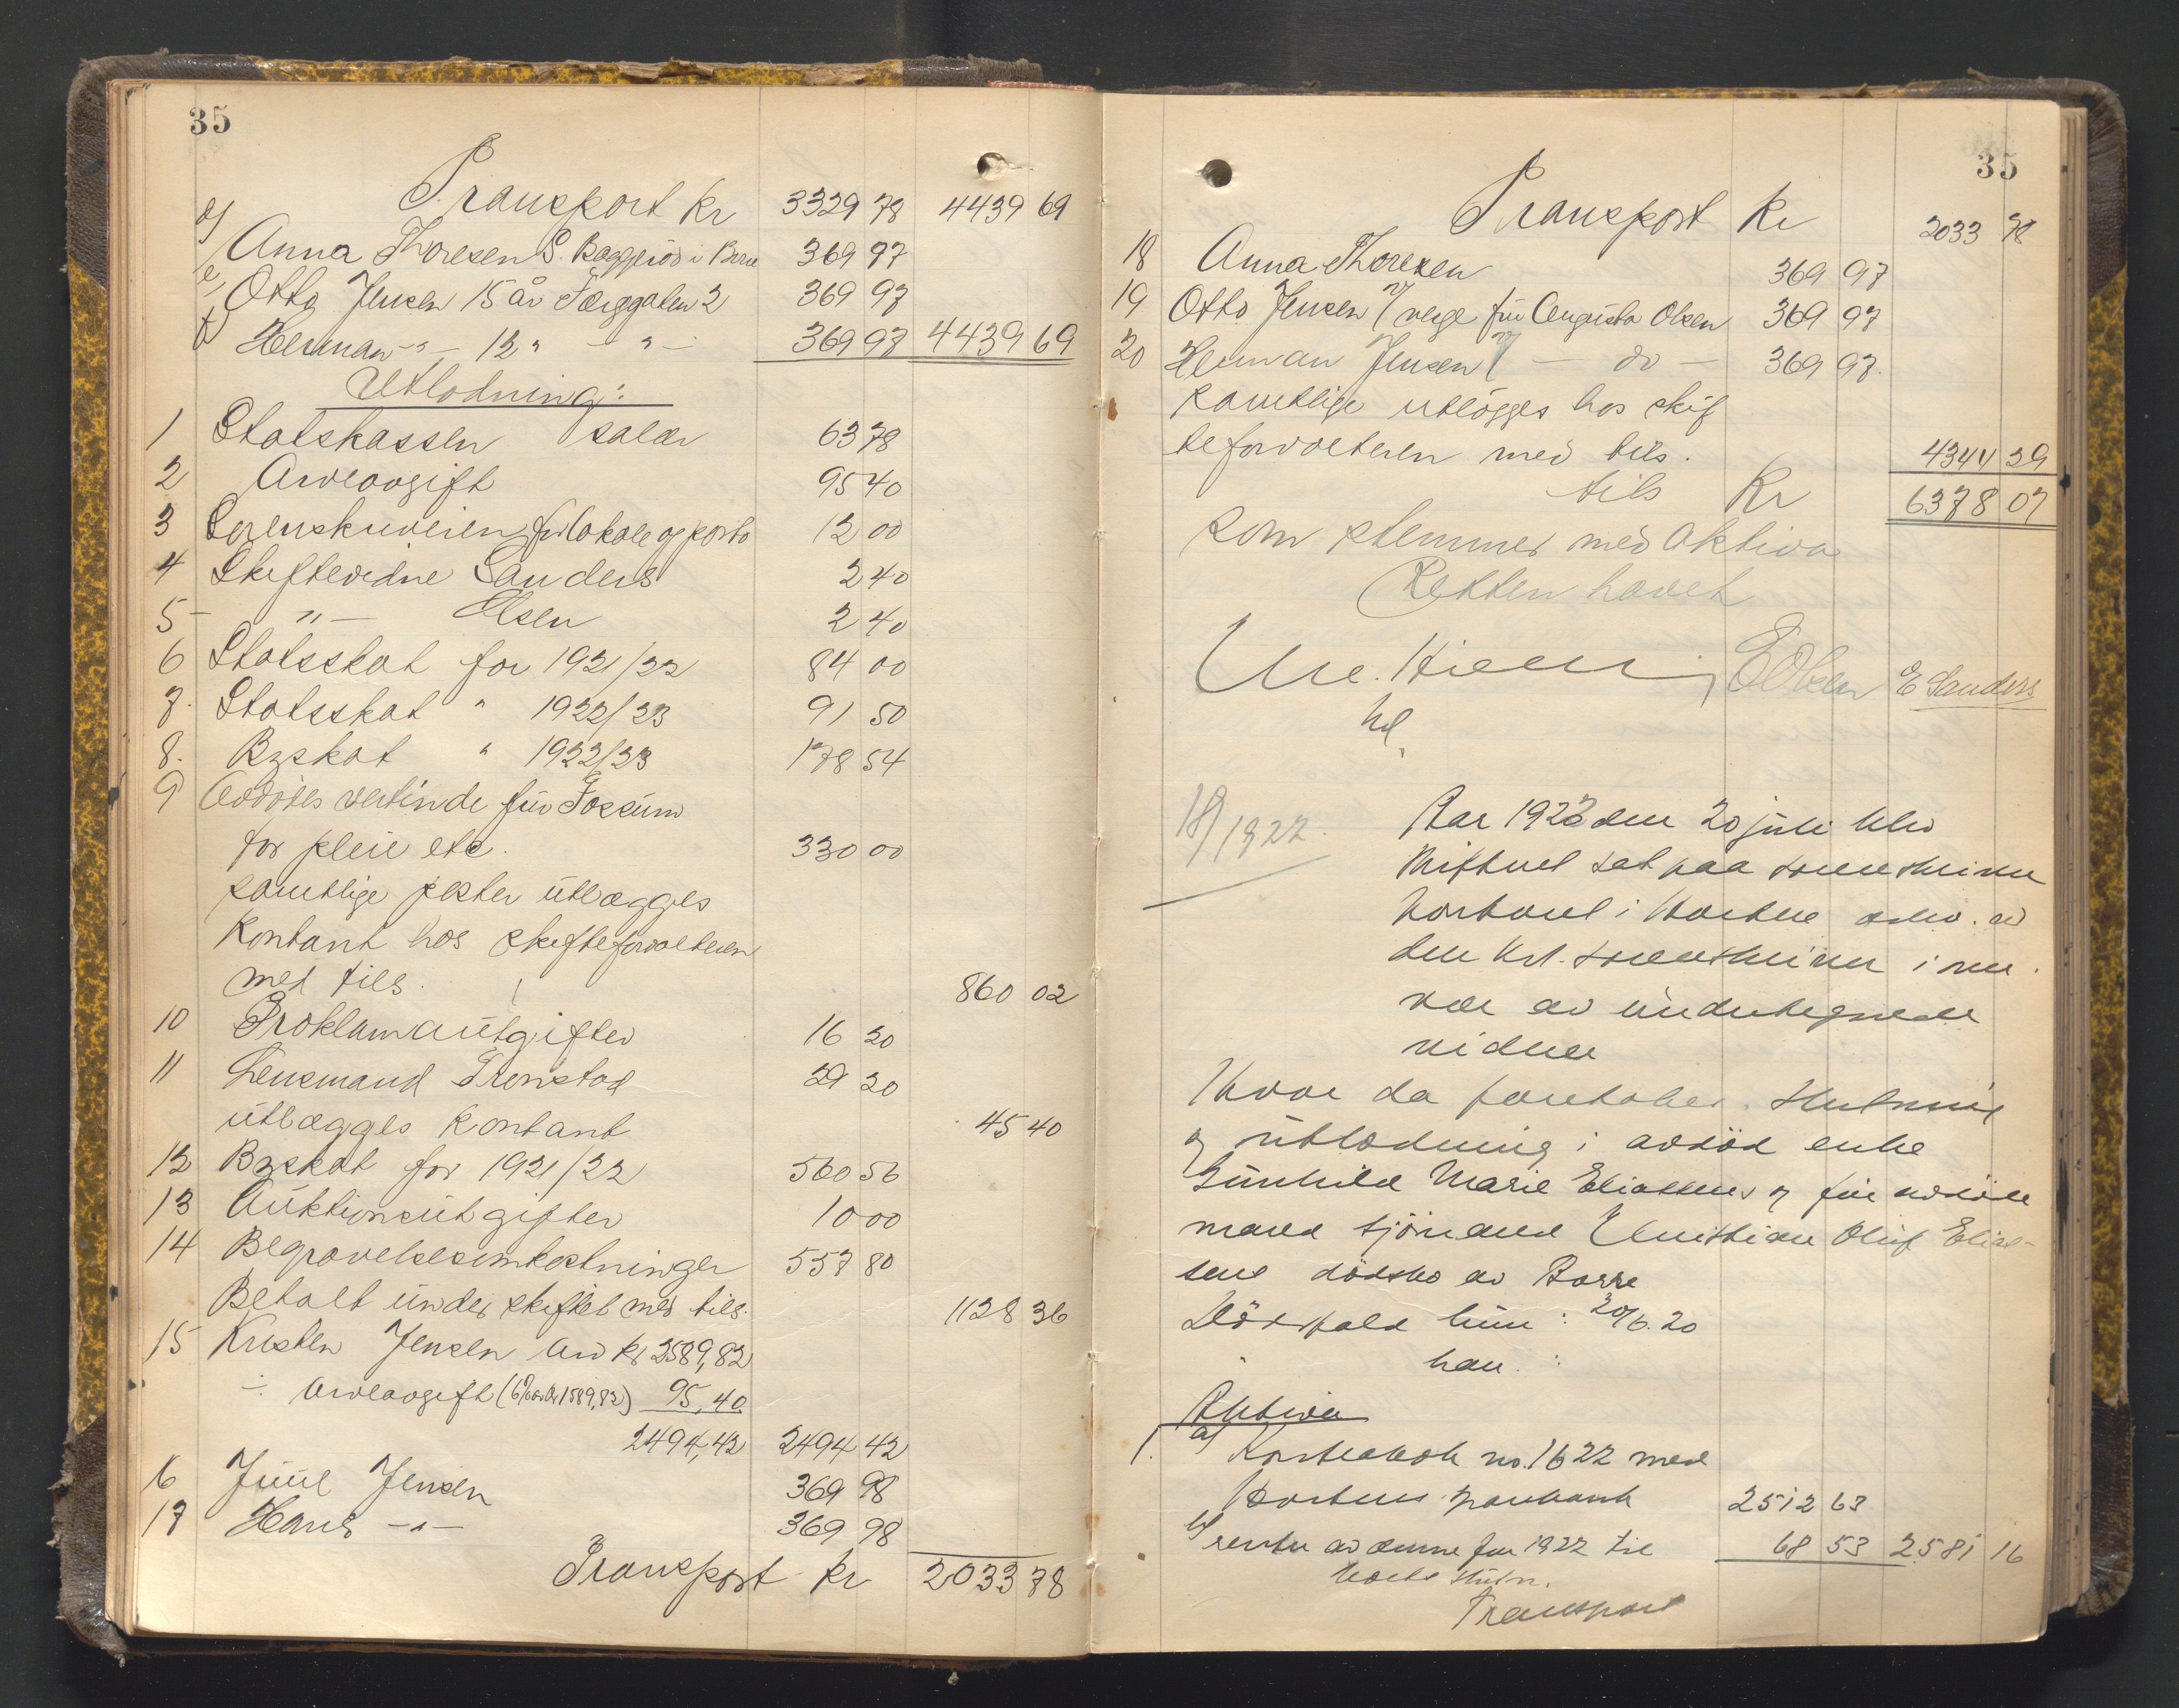 35
Transport Kr 3329 78 4439 69
d) Anna Thoresen S. Baggerød i Borre 369 97
e) Otto Jensen 15 år Færggaten 2 369 97
f) Herman -"- 12 " -"- 369 97 4439 69
Utlodning:
1 Statskassen salær 63 78
2 Arveavgift 95 40
3 Sorenskriveren for lokale og porto 12 00
4 Skiftevidne Sanders 2 40
5 -"- Olsen 2 40
6 Statsskat for 1921/22 84 00
7. Statsskat " 1922/23 91 50
8. Byskat " 1922/23 178 54
9 Avdødes vertinde fru Fossum
for pleie etc. 330 00
samtlige poster utlægges
kontant hos skifteforvalteren
med tils. 860 02
10 Proklamautgifter 16 20
11 Lensmand Tronstad 29 20
utlægges kontant 45 40
12 Byskat for 1921/22 560 56
13 Auktionsutgifter 10 00
14 Begravelsesomkostninger 557 80
Betalt under skiftet med tils. 1128 36
15 Kristen Jensen arv kr 2589,82
÷ arveavgift (6% av kr 1589,82) 95,40
2494,42 2494 42
16 Juul Jensen 369 98
17 Hans -"- 369 98
Transport kr 2033 78
35
Transport Kr 2033 78
18 Anna Thoresen 369 97
19 Otto Jensen verge fru Augusta Olsen 369 97
20 Herman Jensen - do - 369 97.
samtlige utlægges hos skif
teforvalteren med tils. 4344 29
tils Kr 6378 07
som stemmer med aktiva
Retten hævet
E Olsen E Sanders
18/1922.
Aar 1922 den 20 juli blev
skifteret sat paa sorenskriver
kontoret i Horten adm. av
den kst. sorenskriver i nær
vær av undertegnede
vidner
Hvor da foretokes slutning
og utlodning i avdød enke
Gunhild Marie Eliassens og før avdøde
mand sjømand Christian Oluf Elias-
sens dødsbo av Borre
Dødsfald hun: 20/6.20
han. :
Aktiva
1. a) Kontrabok no. 1622 med
Hortens sparebank 2512 63
b) renter av denne for 1922 til
68 53 2581 16
Transport